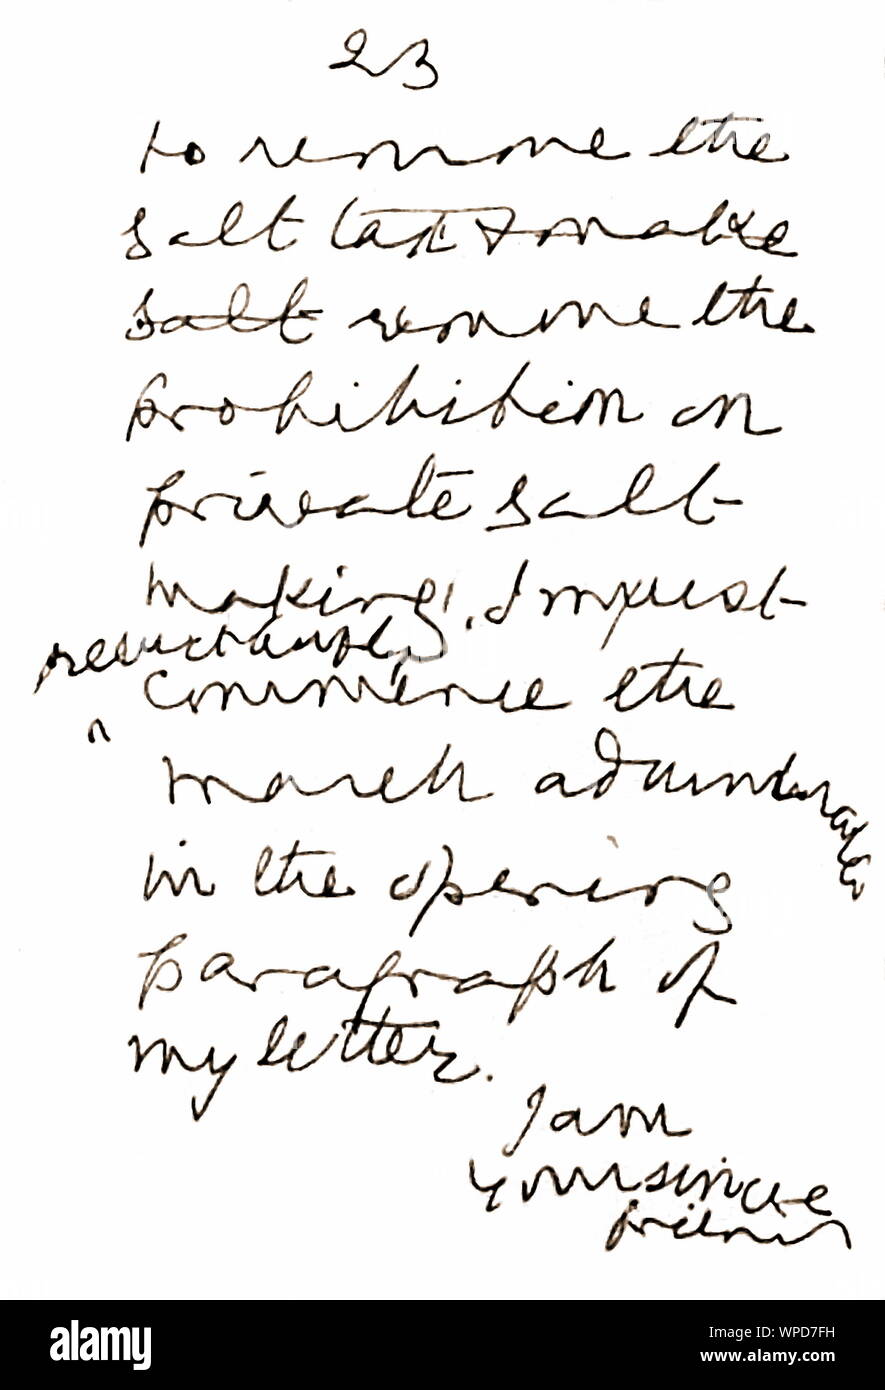 23
to remove the
salt tax & make
salt remove the
prohibition on
private salt
making, I must
reluctantly
commence the
march adumbrated
in the opening
paragraph of
my letter.
I am
Your sincere
friend
alamy
Image ID: WPD7FH
www.alamy.com